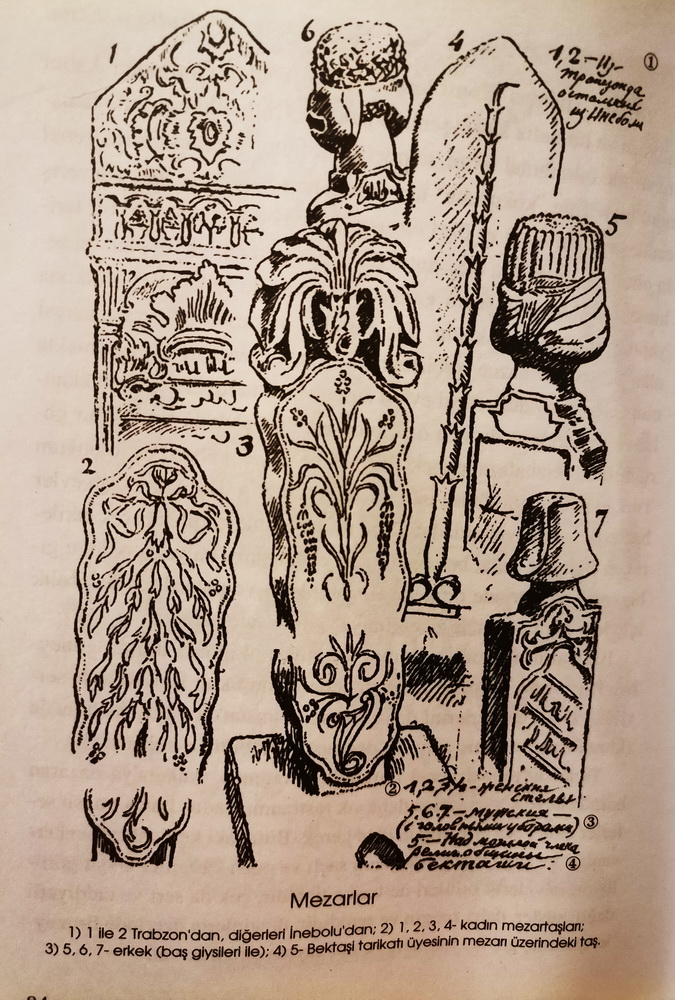 1
6
4
1,2 – Из
Трапезунда
остальные
из Инеболи
①
5
3
2
7
② 1,2,3,4 – женские
стелы
5.6.7 – мужские
(с головными уборами) ③
5 – Над могилой члена
религ. общины
бекташи. ④
Mezarlar
1) 1 ile 2 Trabzon'dan, diğerleri İnebolu'dan; 2) 1, 2, 3, 4- kadın mezartaşları;
3) 5, 6, 7- erkek (baş giysileri ile); 4) 5- Bektaşi tarikatı üyesinin mezarı üzerindeki taş.